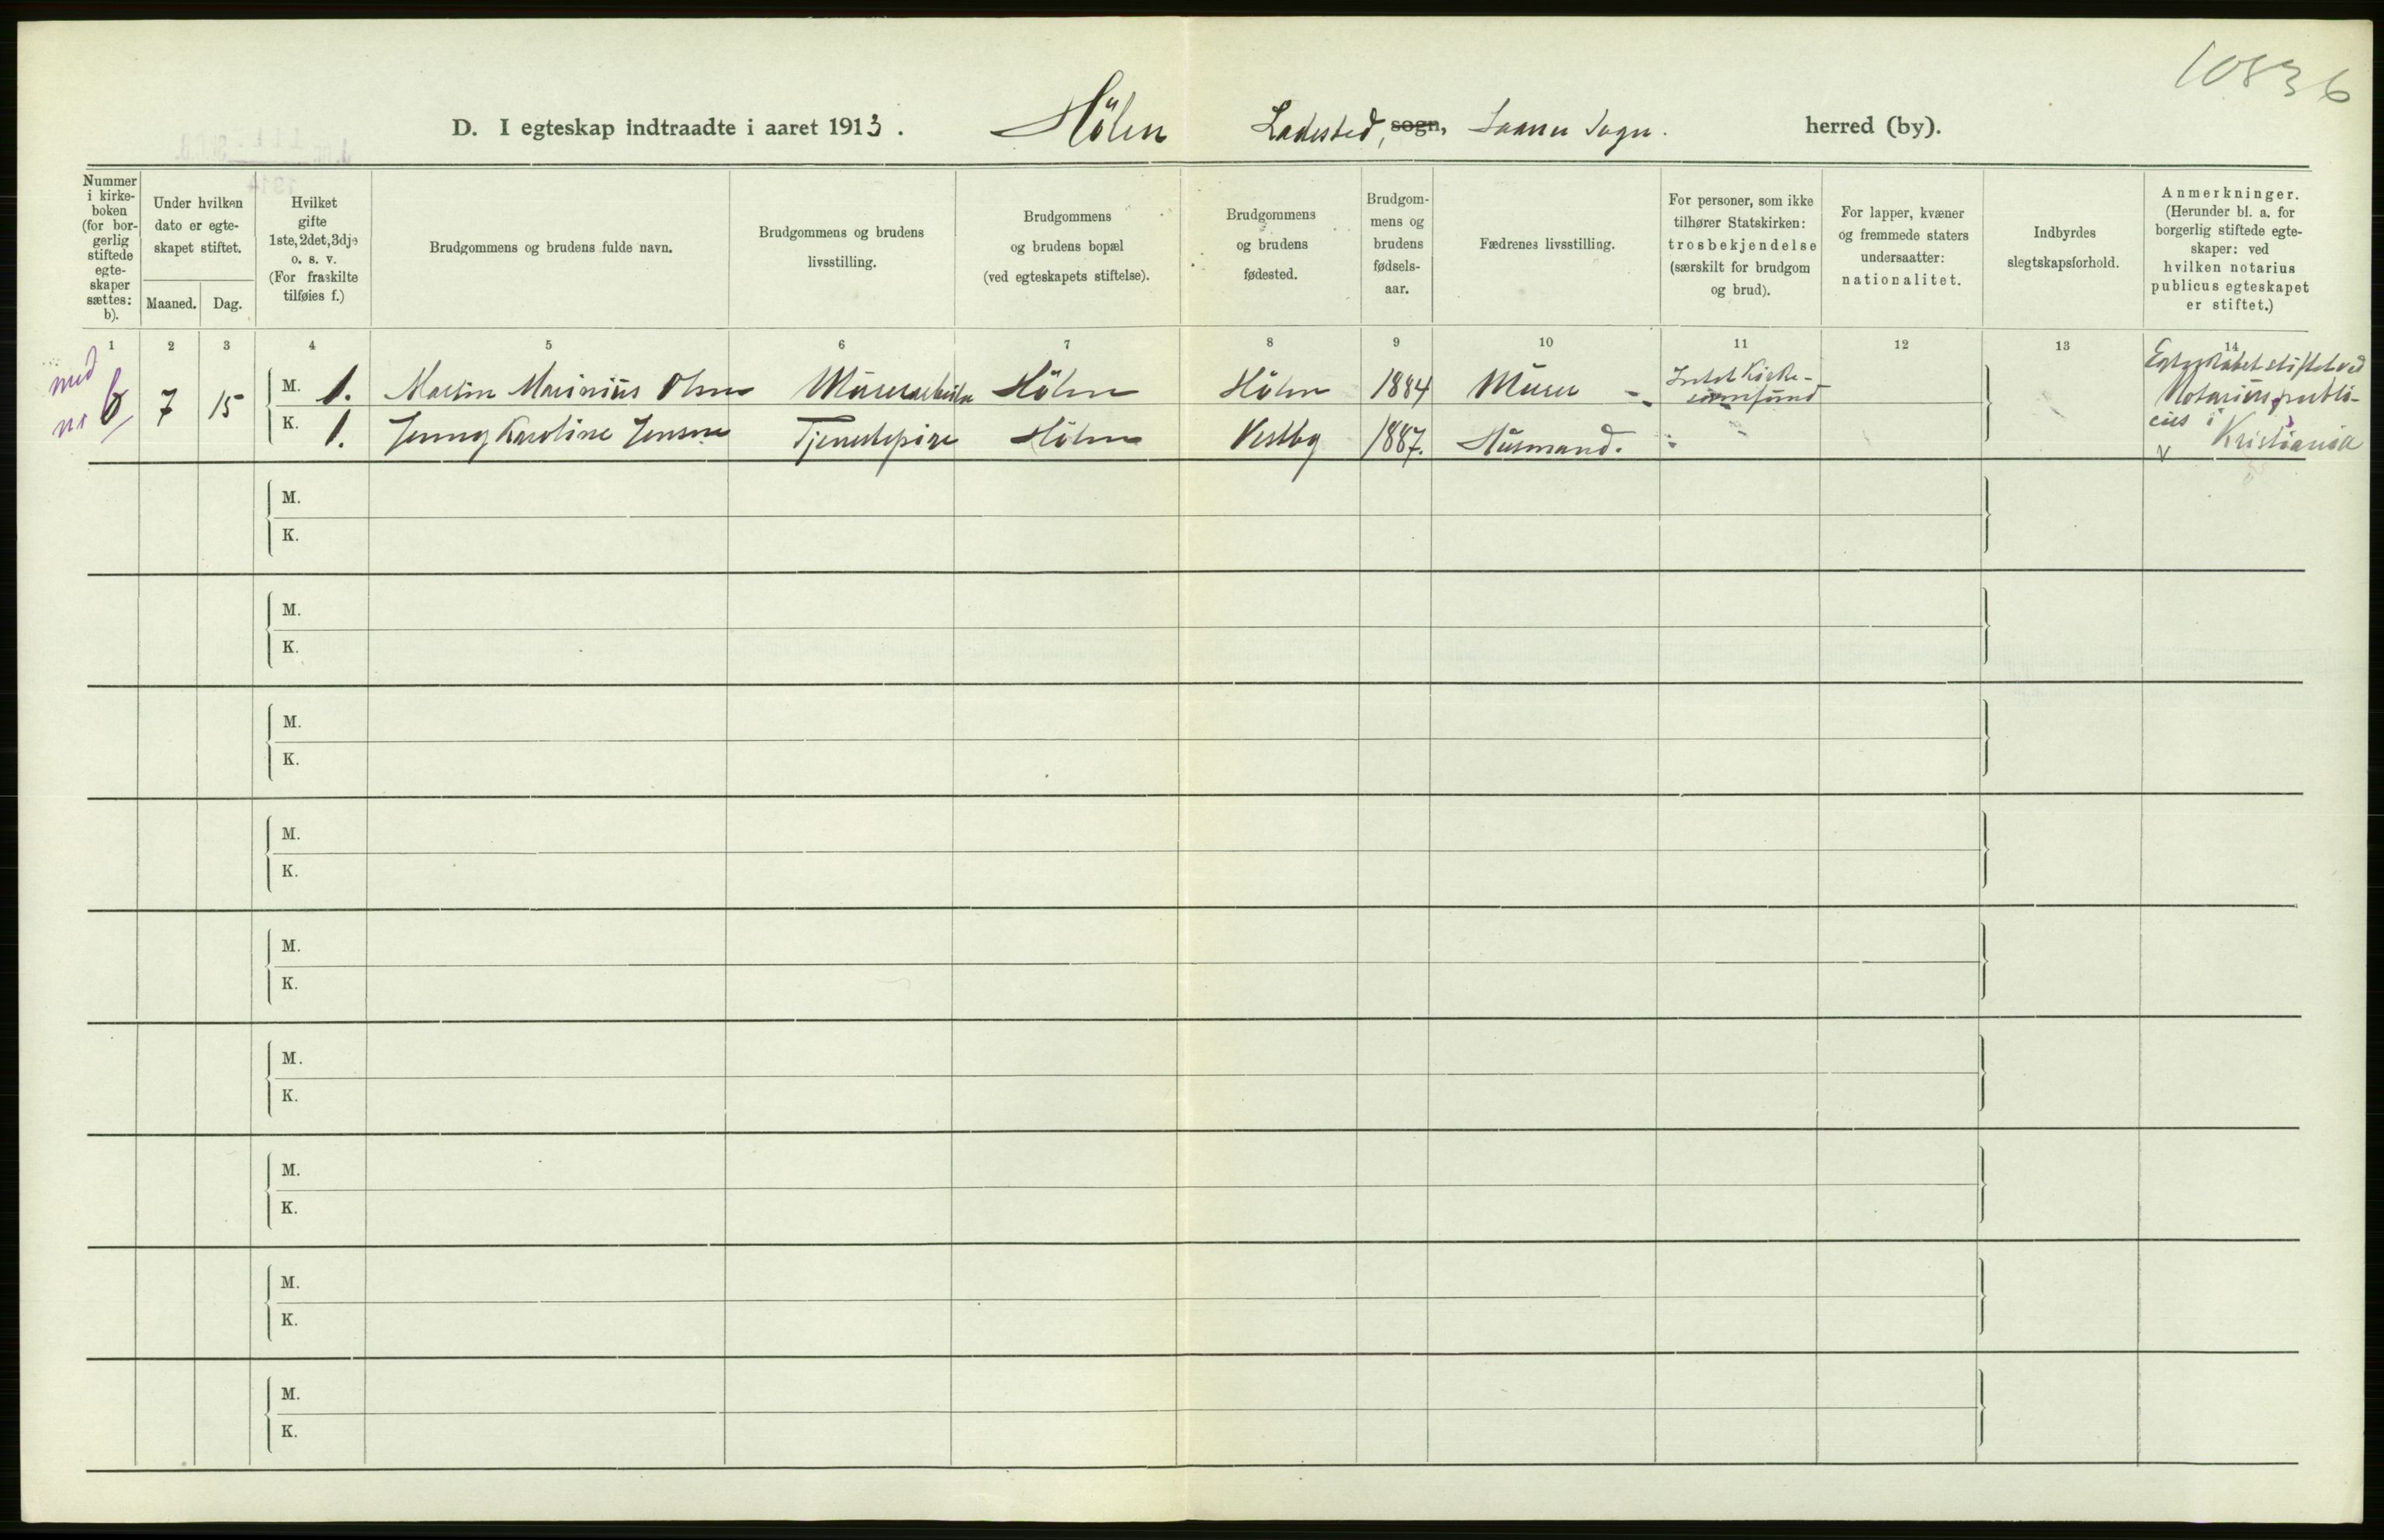 10836
D. I egteskap indtraadte i aaret 1913. Hölen Ladested, sogn, Saaner Sogn. herred (by).
Nummer i kirke-boken (for bor-gerlig stiftede egte-skaper sættes: b).
Under hvilken dato er egte-skapet stiftet.
Maaned. Dag.
Hvilket gifte 1ste, 2det, 3dje o. s. v. (For fraskilte tilføies f.)
Brudgommens og brudens fulde navn.
Brudgommens og brudens livsstilling.
Brudgommens og brudens bopæl (ved egteskapets stiftelse).
Brudgommens og brudens fødested.
Brudgom-mens og brudens fødsels-aar.
Fædrenes livsstilling.
For personer, som ikke tilhører Statskirken: trosbekjendelse (særskilt for brudgom og brud).
For lapper, kvæner og fremmede staters undersaatter: nationalitet.
Indbyrdes slegtskapsforhold.
Anmerkninger. (Herunder bl. a. for borgerlig stiftede egte-skaper: ved hvilken notarius publicus egteskapet er stiftet.)
1 2 3 4 5 6 7 8 9 10 11 12 13 14
7 15 M. 1. Martin Marinius Olsen Murerarbeider Hölen Hölen 1884 Murer Intet Kirke-samfund Egteskabet stiftet ved Notarius publi-cus i Kristiania
K. 1. Jenny Karoline Jensen Tjenestepige Hölen Vestby 1887. Husmand.
M.
K.
M.
K.
M.
K.
M.
K.
M.
K.
M.
K.
M.
K.
M.
K.
M.
K.